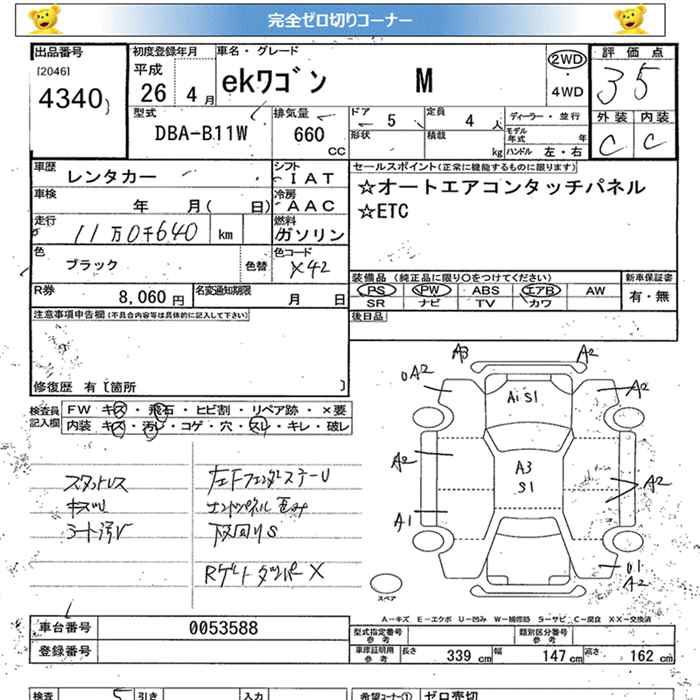 完全ゼロ切りコーナー
出品番号 初度登録年月 車名・グレード 評価点
[2046] 平成 2WD
4340 26 4月 ekワゴン M ・ 35
4WD
型式 排気量 ドア 定員 ディーラー・並行 外装 内装
DBA-B11W 660 CC 5 4人 モデル年式 年 C C
形状 積載 kg ハンドル 左・右
車歴 レンタカー シフト IAT セールスポイント(正常に機能するものに限ります)
車検 年 月( 日) 冷房 AAC ☆オートエアコンタッチパネル
走行 11万0千640 km 燃料 ガソリン ☆ETC
色 ブラック 色替 色コード X42
装備品 (純正品に限り○をつけてください) 新車保証書
R券 8,060円 名変通知期限 月 日 PS PW ABS エアB AW 有・無
SR ナビ TV カワ
注意事項申告欄(不具合内容等は具体的に記入して下さい) 後日品
修復歴 有〔箇所 〕
検査員記入欄 FW キズ・飛石・ヒビ割・リペア跡・×要
内装 キズ・汚レ・コゲ・穴・スレ・キレ・破レ
A3 A2
A2 A2
Ai S1
A2 A3 S1 A2
A1
U1
A2
スタットレス 左Fフェンダーステー U
キズU
シート汚レ 下回りS
Rゲートダンパー X
スペア
A-キズ E-エクボ U-凹み W-補修跡 S-サビ C-腐食 XX-交換済
車台番号 0053588 型式指定番号 参考 類別区分番号 参考
登録番号 車庫証明用 参考 長さ 339cm 幅 147cm 高さ 162cm
検査 5 引き 入力 希望コーナー① ゼロ売切